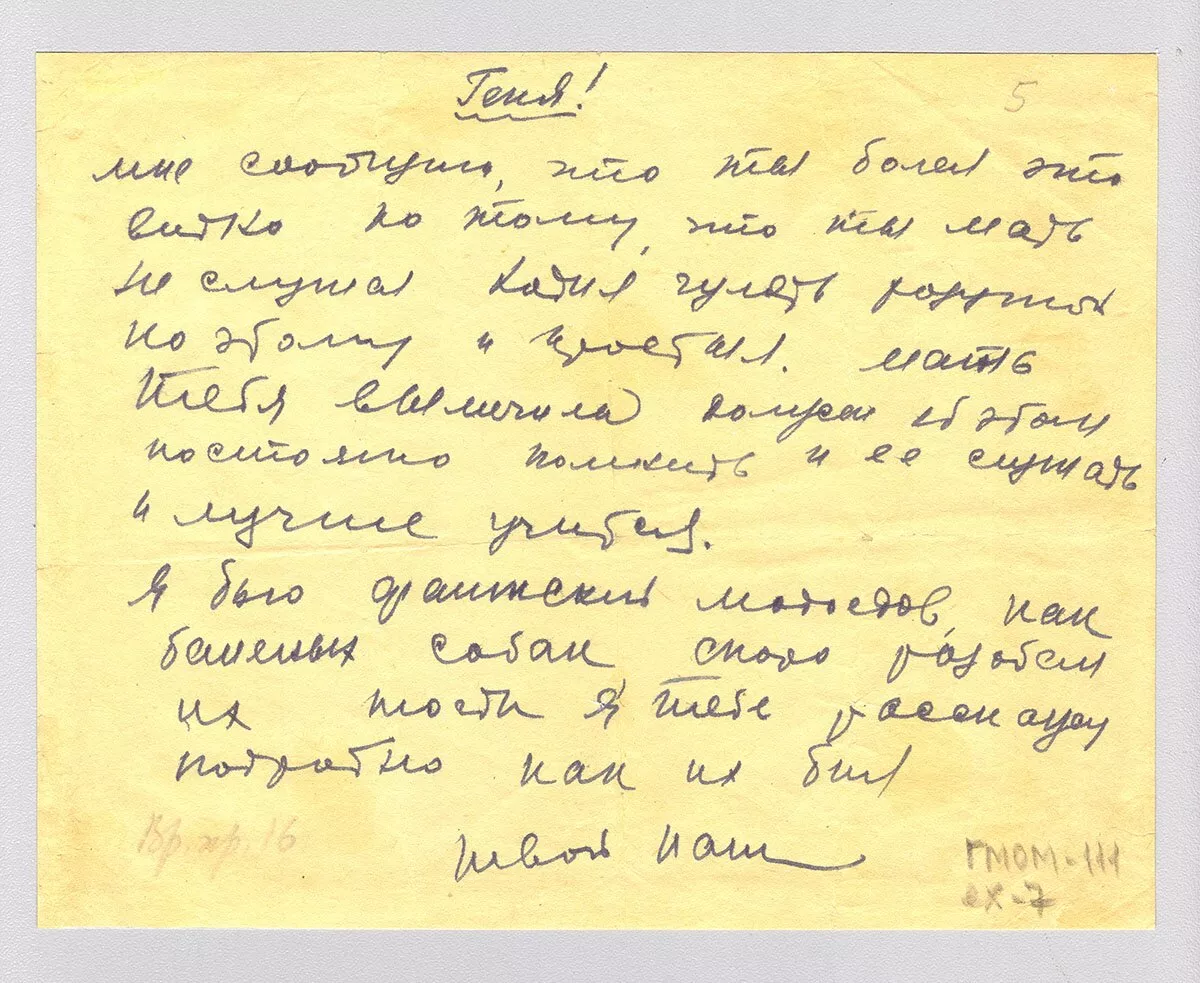 Геня!
5
мне сообщили, что ты болел это
видно по тому, что ты мать
не слушал ходил гулять
поэтому и простыл. мать
тебя вылечила должен об этом
постоянно помнить и ее слушать
и лучше учится.
Я бью фашистских людоедов, как
бешеных собак, скоро разобем
их тогда я тебе расскажу
подробно как их бил
твой папа
Вр. хр. 16
ГМОМ-111
ех-7